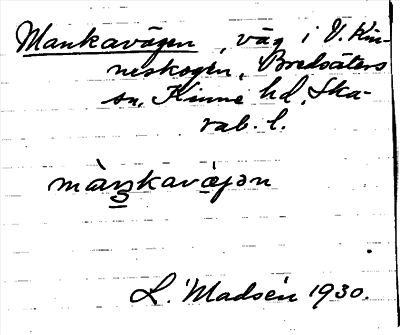 Mankavägen, väg i V. Kin-
neskogen, Bredsäters
sn, Kinne hd, Ska-
rab. l.
màŋkavä̀gən
L. Madsén 1930.